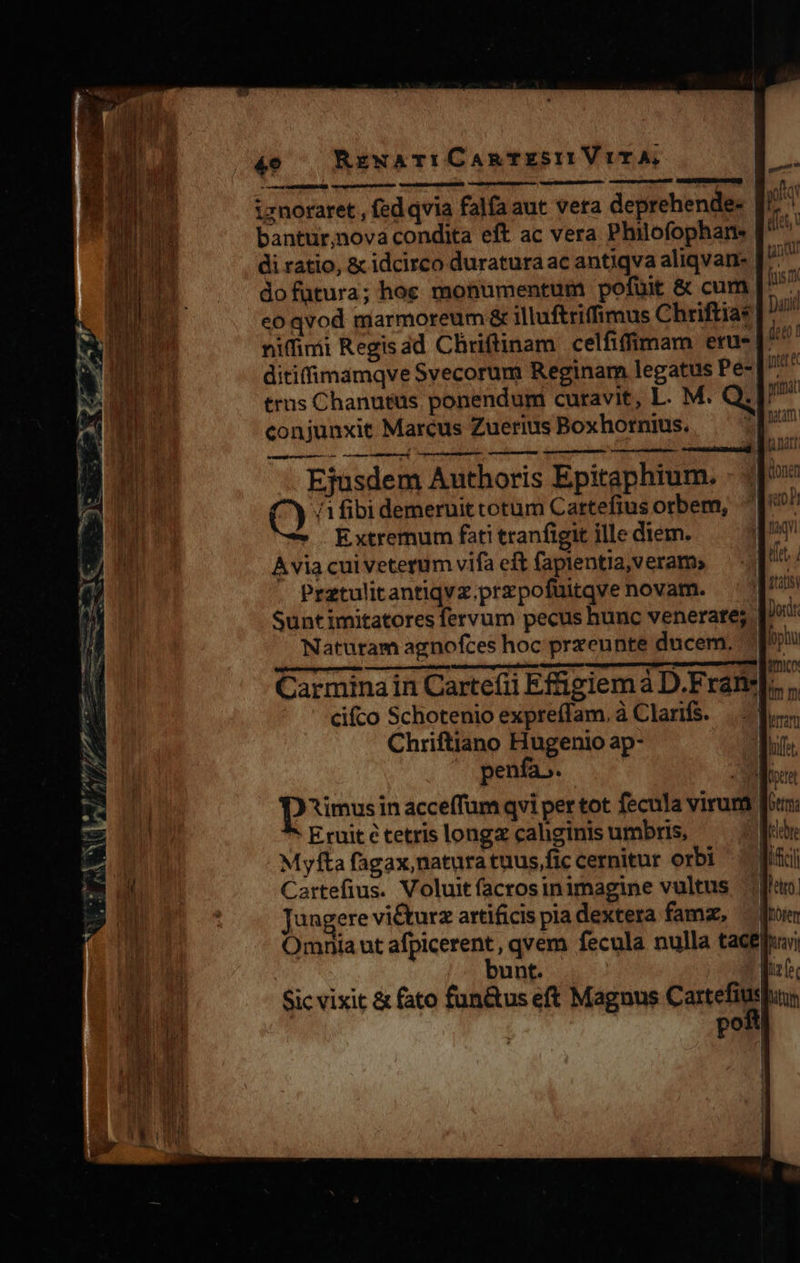 40 RENATI CARTESII VITA,
iznoraret, ſed qvia falſa aut vera deprehende-
bantur, nova condita eſt ac vera Philoſophan-
di ratio, & idcirco duratura ac antiqva aliqvan-
do futura; hoc monumentum poſuit & cum
eo qvod marmoreum & illuſtriſſimus Chriſtia-
niſſimi Regis ad Chriſtinam celſiſſimam eru-
ditiſſimamqve Svecorum Reginam legatus Pe-
trus Chanutus ponendum curavit, L. M. Q.
conjunxit Marcus Zuerius Boxhornius.
Ejusdem Authoris Epitaphium.
Qvi ſibi demeruit totum Carteſius orbem,
Extremum fati tranſigit ille diem.
Avia cui veterum viſa eſt ſapientia, veram,
Prætulit antiqvæ, præpoſuitqve novam.
Sunt imitatores ſervum pecus hunc venerare;
Naturam agnoſces hoc præeunte ducem.
Carmina in Carteſii Effigiem à D. Fran-
ciſco Schotenio expreſſam, à Clariſs.
Chriſtiano Hugenio ap-
penſa.
Primus in acceſſum qvi per tot ſecula virum
Eruit è tetris longæ caliginis umbris,
Myſta ſagax, natura tuus, ſic cernitur orbi
Carteſius. Voluit ſacros in imagine vultus
Jungere victuræ artificis pia dextera famæ,
Omnia ut aſpicerent, qvem ſecula nulla tace-
bunt.
Sic vixit & fato functus eſt Magnus Carteſius
poſt